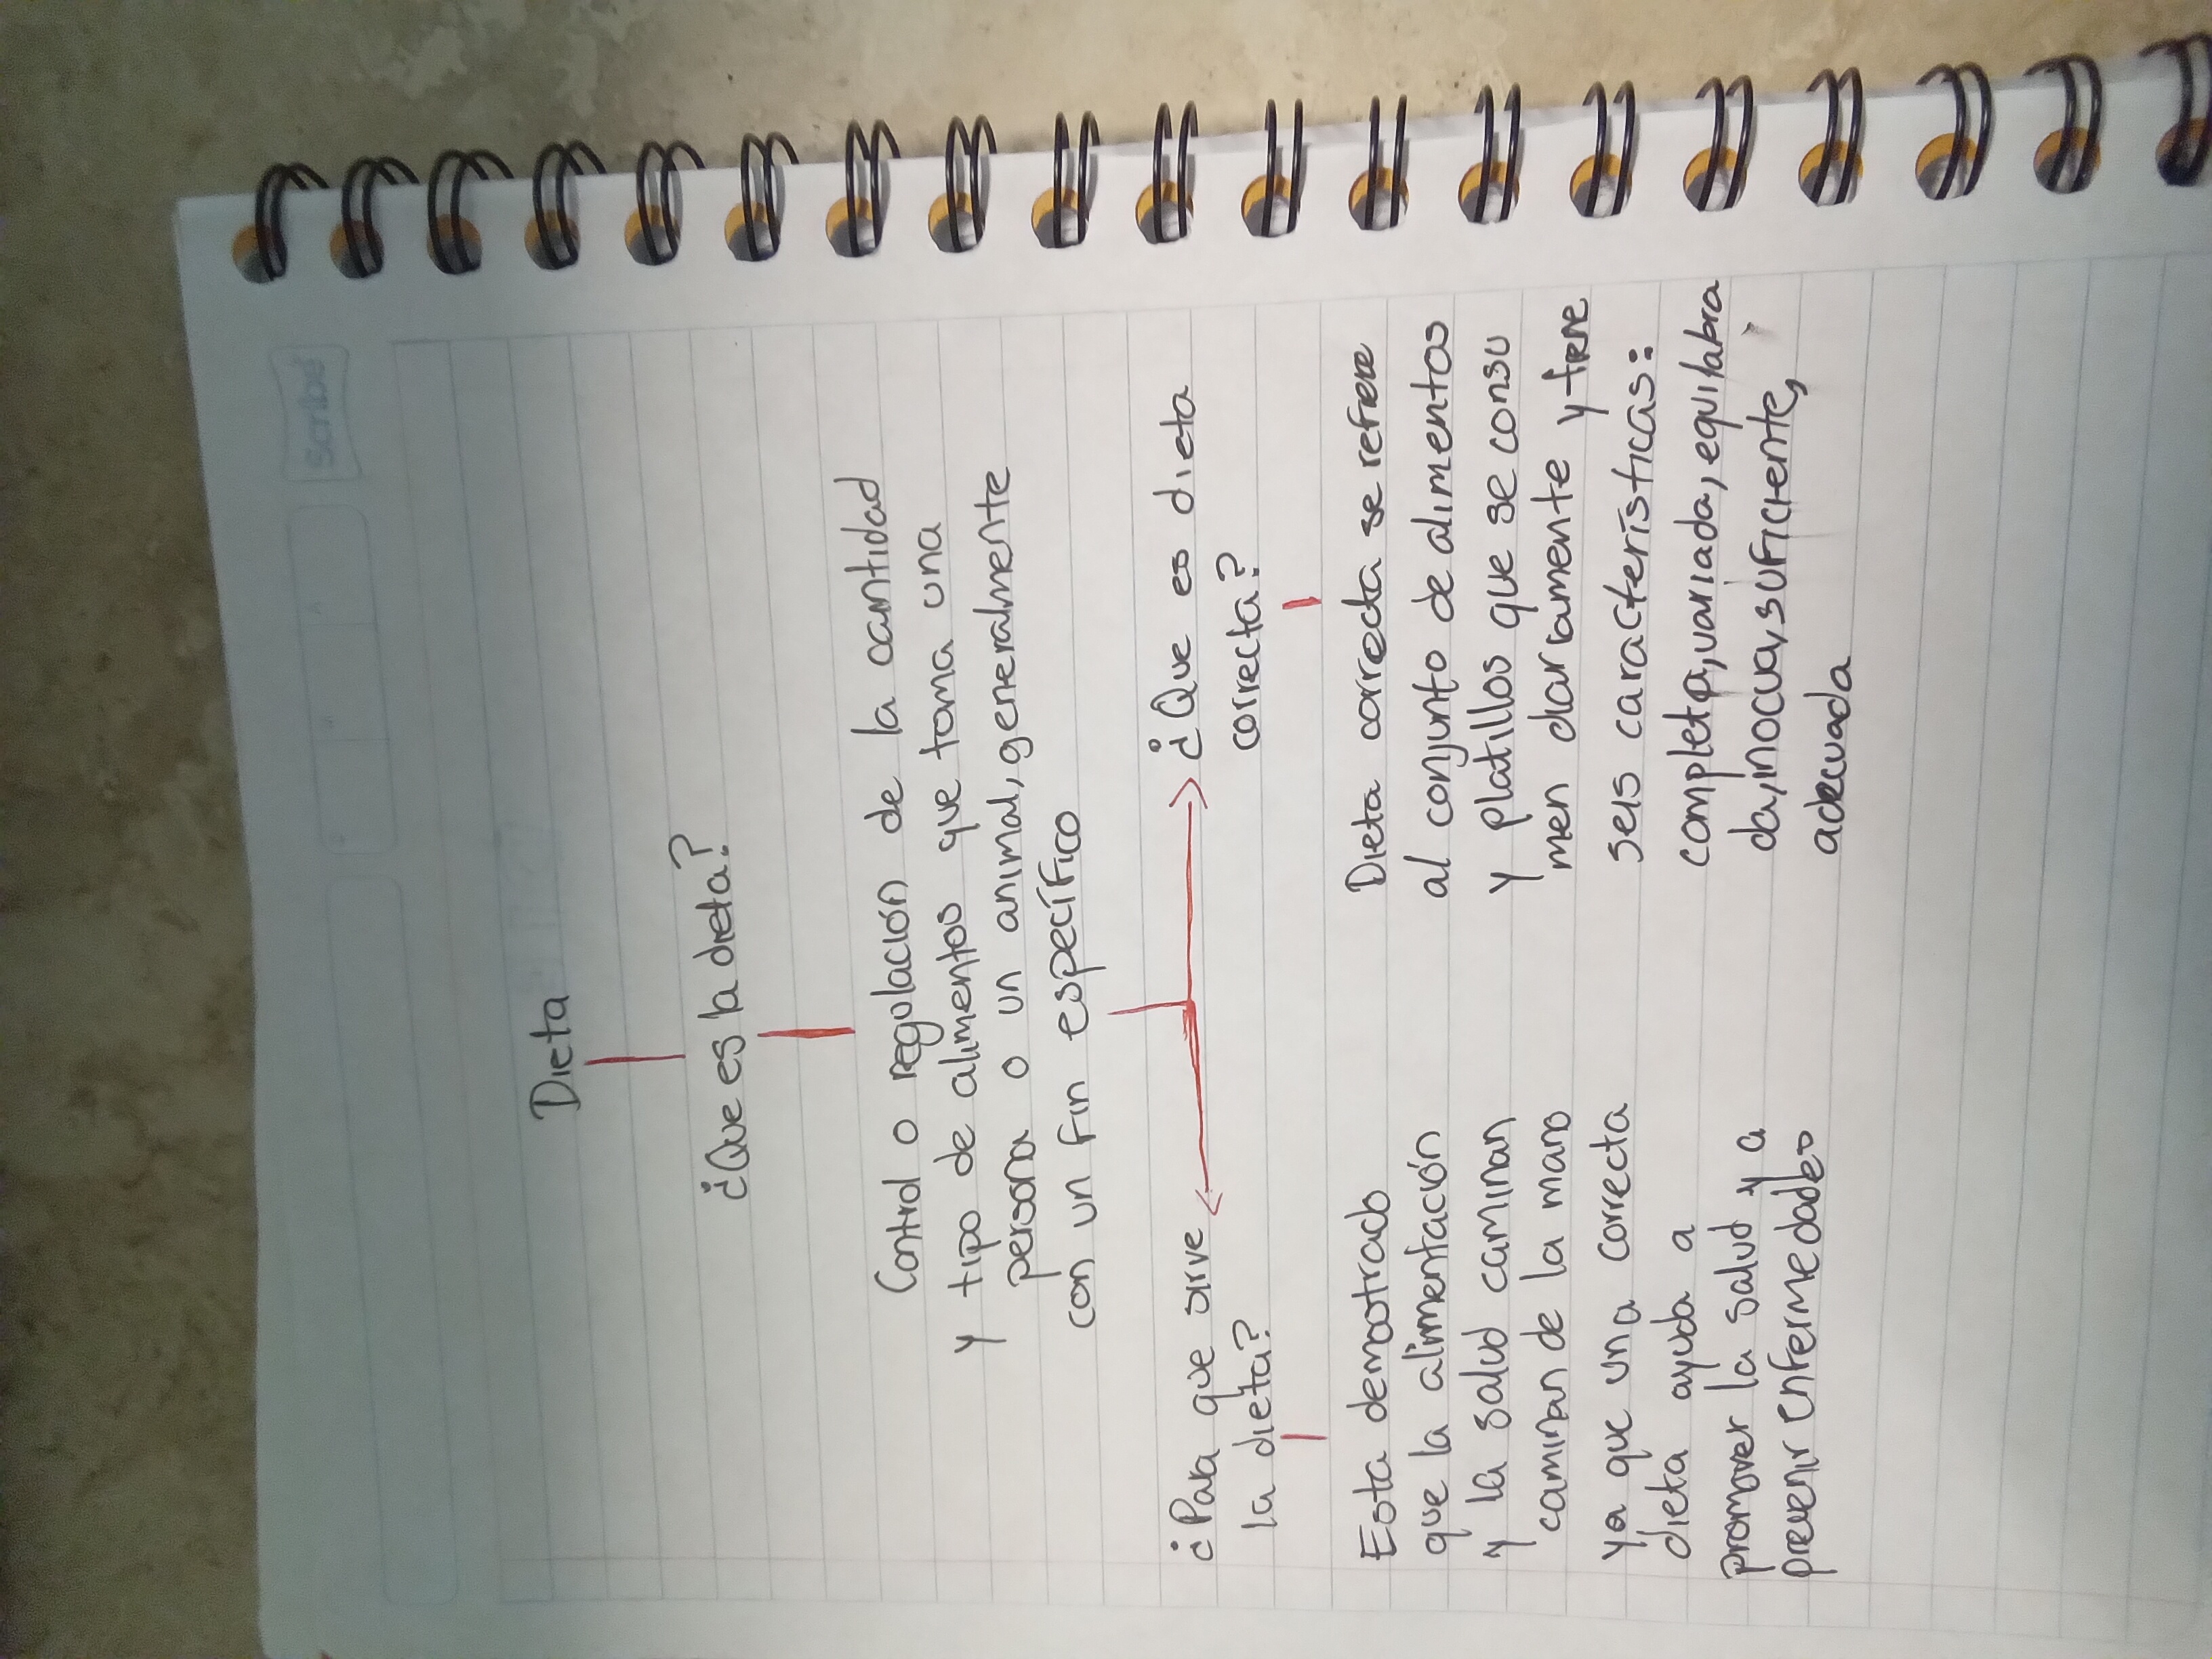 Scribe
Dieta
¿Que es la dieta?
Control o regulación de la cantidad
y tipo de alimentos que toma una
persona o un animal, generalmente
con un fin específico
¿Para que sirve
la dieta?
Esta demostrado
que la alimentación
y la salud caminan
caminan de la mano
ya que una correcta
dieta ayuda a
promover la salud y a
prevenir enfermedades
¿Que es dieta
correcta?
Dieta correcta se refiere
al conjunto de alimentos
y platillos que se consu
men diariamente y tiene
seis características:
completa, variada, equilabra
da, inocua, suficiente,
adecuada